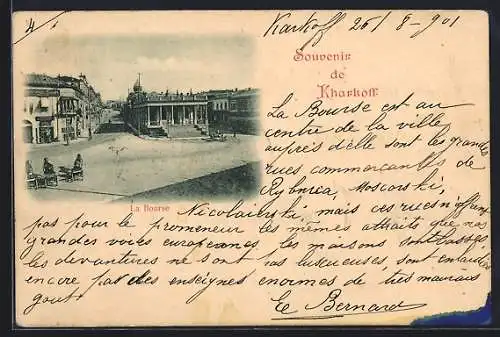 4
Karkoff 26/8-901
Souvenir
de
Kharkoff
La Bourse
La Bourse est au
centre de la ville
auprès d'elle sont les grandes
rues commerçantes de
Rybnaia, Moscovski,
Nicolaievski, mais ces rues n'offrent
pas pour le promeneur les mêmes attraits que nos
grandes voies européennes les maisons sont basses,
les devantures ne sont pas luxueuses, sont entourées
encore par des enseignes enormes de très mauvais
gout.
E Bernard